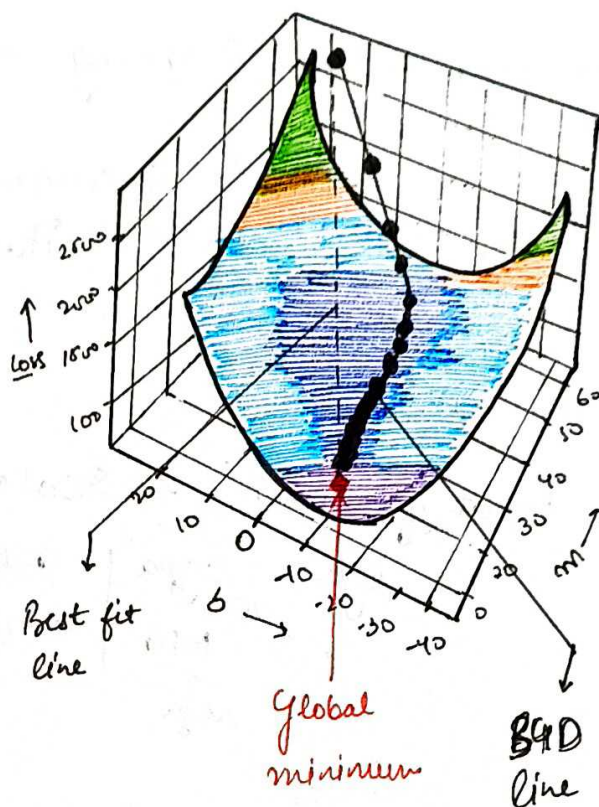 2500
2000
1500
100
Loss
20
10
0
-10
-20
-30
-40
b
0
20
30
40
50
60
m
Best fit
line
Global
minimum
BGD
line